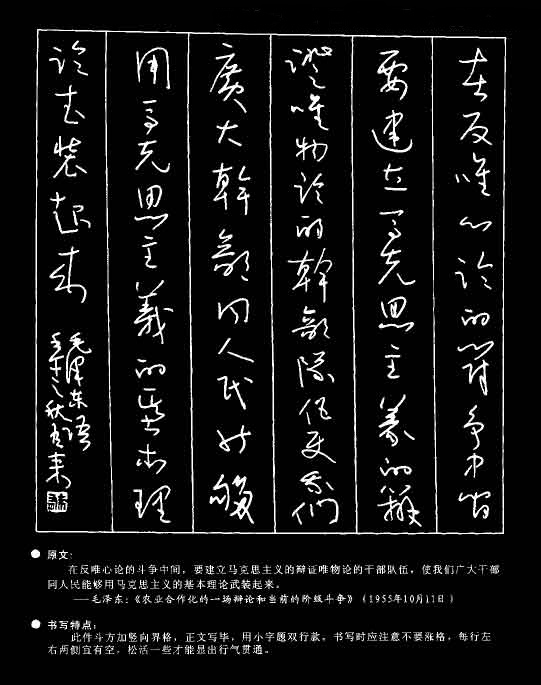 在反唯心论的鬥争中间
要建立马克思主义的辩
證唯物论的幹部队伍使我们
廣大幹部同人民能够
用马克思主義的基本理
论武装起来
毛泽东语
原文：
在反唯心论的斗争中间，要建立马克思主义的辩证唯物论的干部队伍，使我们广大干部
同人民能够用马克思主义的基本理论武装起来。
——毛泽东：《农业合作化的一场辩论和当前的阶级斗争》（1955年10月11日）
书写特点：
此件斗方加竖向界格，正文写毕，用小字题双行款。书写时应注意不要涨格，每行左
右两侧宜有空，松活一些才能显出行气贯通。